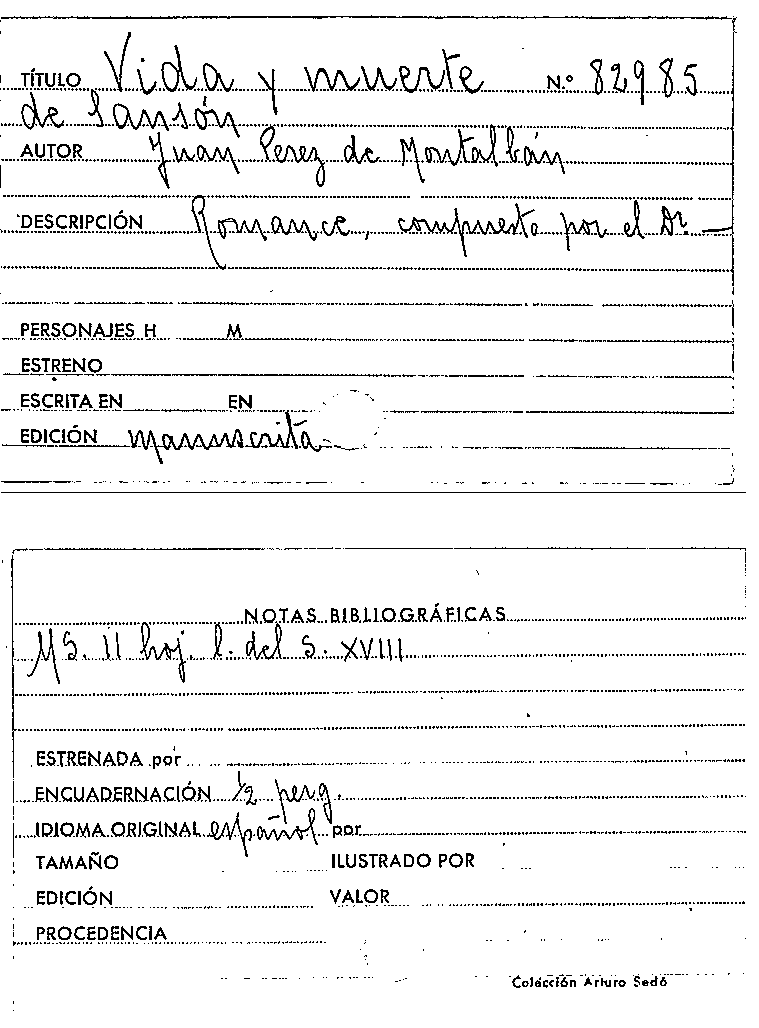 TÍTULO Vida y muerte N.º 82985
de Sansón
AUTOR Juan Perez de Montalbán
DESCRIPCIÓN Romance, compuesto por el Dr. —
PERSONAJES H M
ESTRENO
ESCRITA EN EN
EDICIÓN manuscrita
NOTAS BIBLIOGRÁFICAS
MS. 11 hoj. l. del s. XVIII
ESTRENADA por
ENCUADERNACIÓN ½ perg.
IDIOMA ORIGINAL español por
TAMAÑO ILUSTRADO POR
EDICIÓN VALOR
PROCEDENCIA
Colección Arturo Sedó